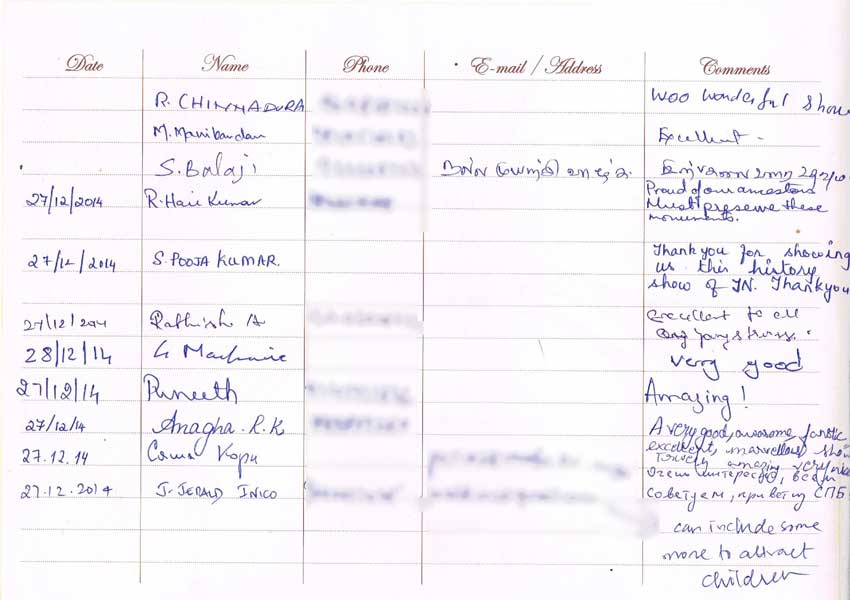 Date Name Phone E-mail / Address Comments
R. CHINNADURA Woo wonderful show
M. Manibandan Excellent -
S. Balaji
27/12/2014 R. Hari Kumar Proud of our ancestors
Must preserve these
monuments.
27/12/2014 S. POOJA KUMAR. Thank you for showing
us this history
show of TN. Thankyou
27/12/2014 Rathish A Excellent to all
28/12/14 very good
27/12/14 Puneeth Amazing!
27/12/14 Anagha. R. K A very good, awesome, fantastic
excellent, marvellous show
27.12.14 amazing very nice
очень интересно, всем
27.12.2014 J. JERALD INICO советуем, приветиз СПБ
can include some
more to attract
children